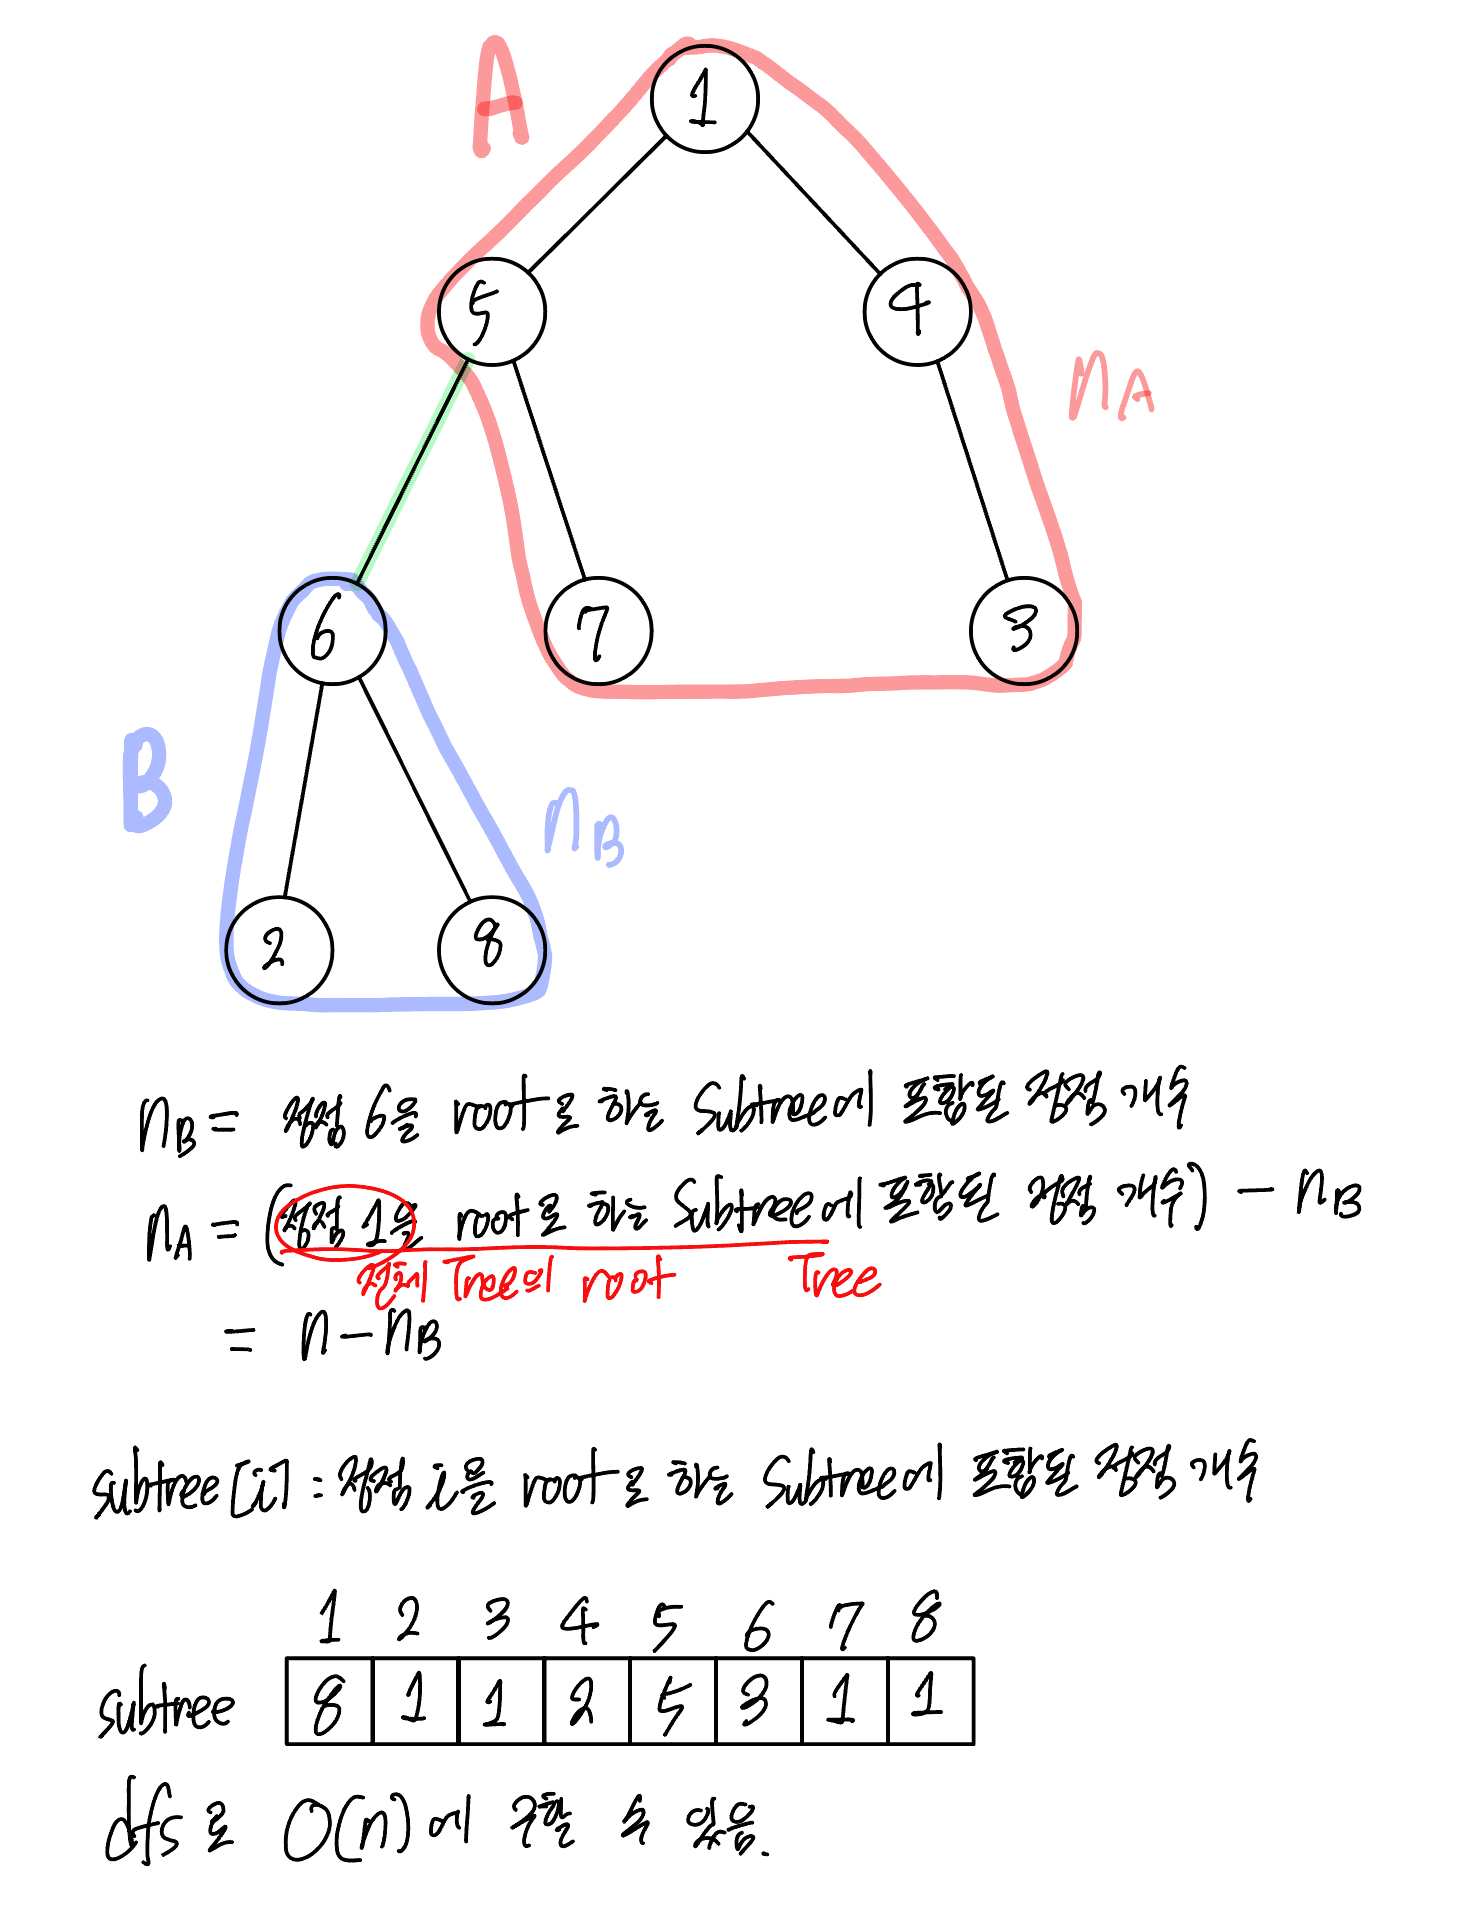 A
1
5
4
n_A
6
7
3
B
n_B
2
8
n_B = 정점 6을 root로 하는 Subtree에 포함된 정점 개수
n_A = (정점 1을 root로 하는 Subtree에 포함된 정점 개수) - n_B
전체 Tree의 root Tree
= n - n_B
subtree[i] : 정점 i를 root로 하는 Subtree에 포함된 정점 개수
1 2 3 4 5 6 7 8
subtree 8 1 1 2 5 3 1 1
dfs로 O(n)에 구할 수 있음.